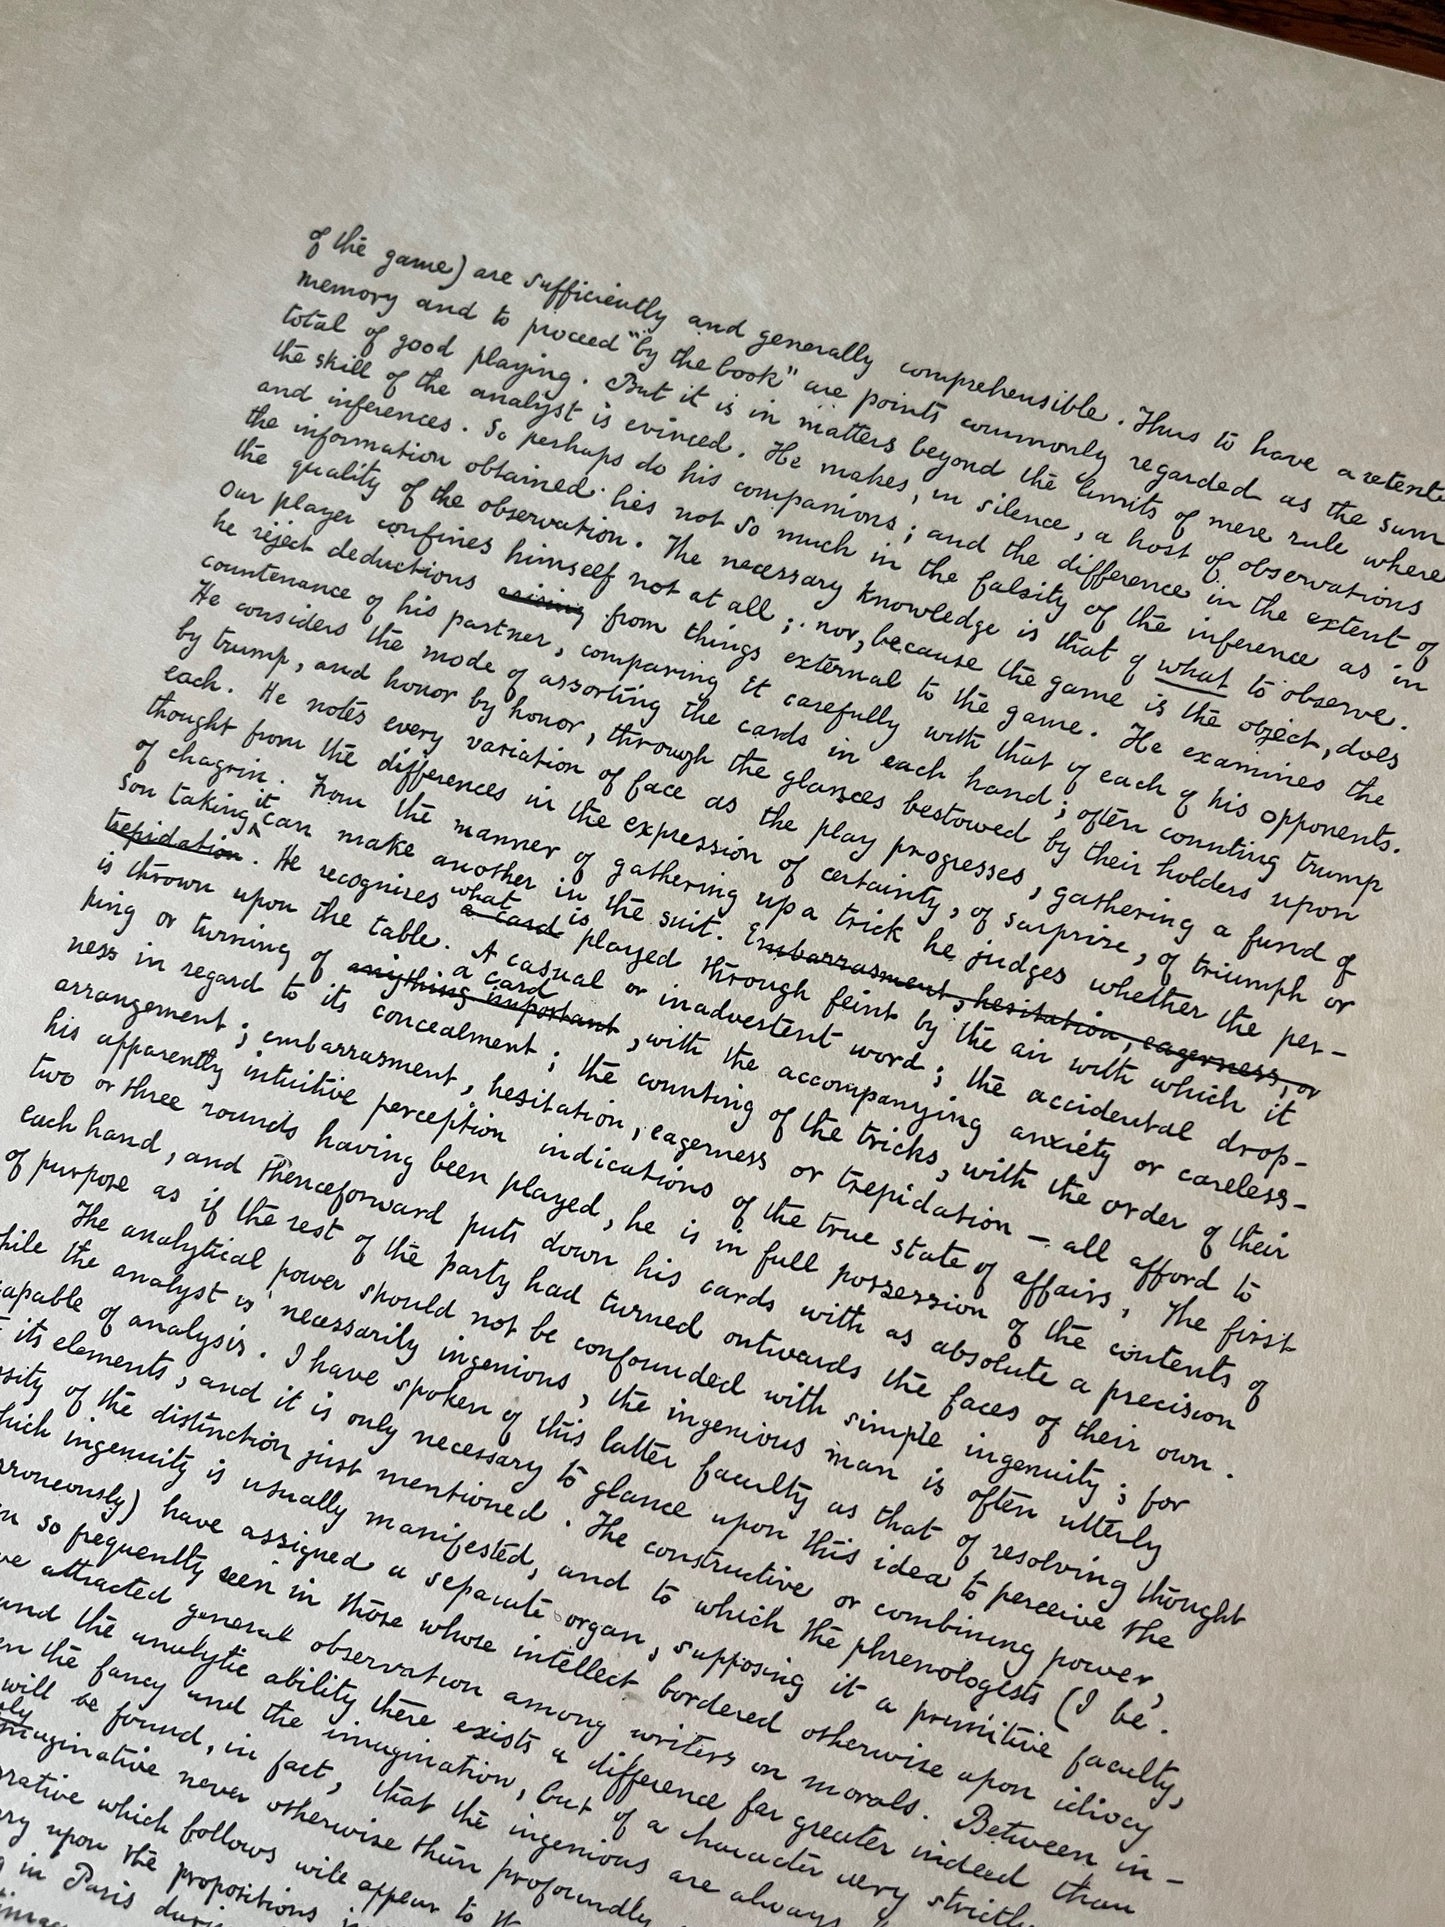 of the game) are sufficiently and generally comprehensible. Thus to have a retent
memory and to proceed "by the book" are points commonly regarded as the sum
total of good playing. But it is in matters beyond the limits of mere rule where
the skill of the analyst is evinced. He makes, in silence, a host of observations
and inferences. So perhaps do his companions; and the difference in the extent of
the information obtained lies not so much in the falsity of the inference as in
the quality of the observation. The necessary knowledge is that of what to observe.
Our player confines himself not at all; nor, because the game is the object, does
he reject deductions arising from things external to the game. He examines the
countenance of his partner, comparing it carefully with that of each of his opponents.
He considers the mode of assorting the cards in each hand; often counting trump
by trump, and honor by honor, through the glances bestowed by their holders upon
each. He notes every variation of face as the play progresses, gathering a fund of
thought from the differences in the expression of certainty, of surprise, of triumph or
of chagrin. From the manner of gathering up a trick he judges whether the per-
son taking it can make another in the suit. Embarrasment, hesitation, eagerness, or
trepidation. He recognises what is a card played through feint by the air with which it
is thrown upon the table. A casual or inadvertent word; the accidental drop-
ping or turning of anything important a card, with the accompanying anxiety or careless-
ness in regard to its concealment; the counting of the tricks, with the order of their
arrangement; embarrasment, hesitation, eagerness or trepidation — all afford to
his apparently intuitive perception indications of the true state of affairs. The first
two or three rounds having been played, he is in full possession of the contents of
each hand, and thenceforward puts down his cards with as absolute a precision
of purpose as if the rest of the party had turned outwards the faces of their own.
The analytical power should not be confounded with simple ingenuity; for
hile the analyst is necessarily ingenious, the ingenious man is often utterly
capable of analysis. I have spoken of this latter faculty as that of resolving thought
its elements, and it is only necessary to glance upon this idea to perceive the
sity of the distinction just mentioned. The constructive or combining power,
hich ingenuity is usually manifested, and to which the phrenologists (I be-
rroneously) have assigned a separate organ, supposing it a primitive faculty,
n so frequently seen in those whose intellect bordered otherwise upon idiocy
ve attracted general observation among writers on morals. Between in-
und the analytic ability there exists a difference far greater indeed than
en the fancy and the imagination, but of a character very strictly
will be found, in fact, that the ingenious are always
ly imaginative never otherwise than profoundly
rrative which follows will appear to
ry upon the propositions
in Paris